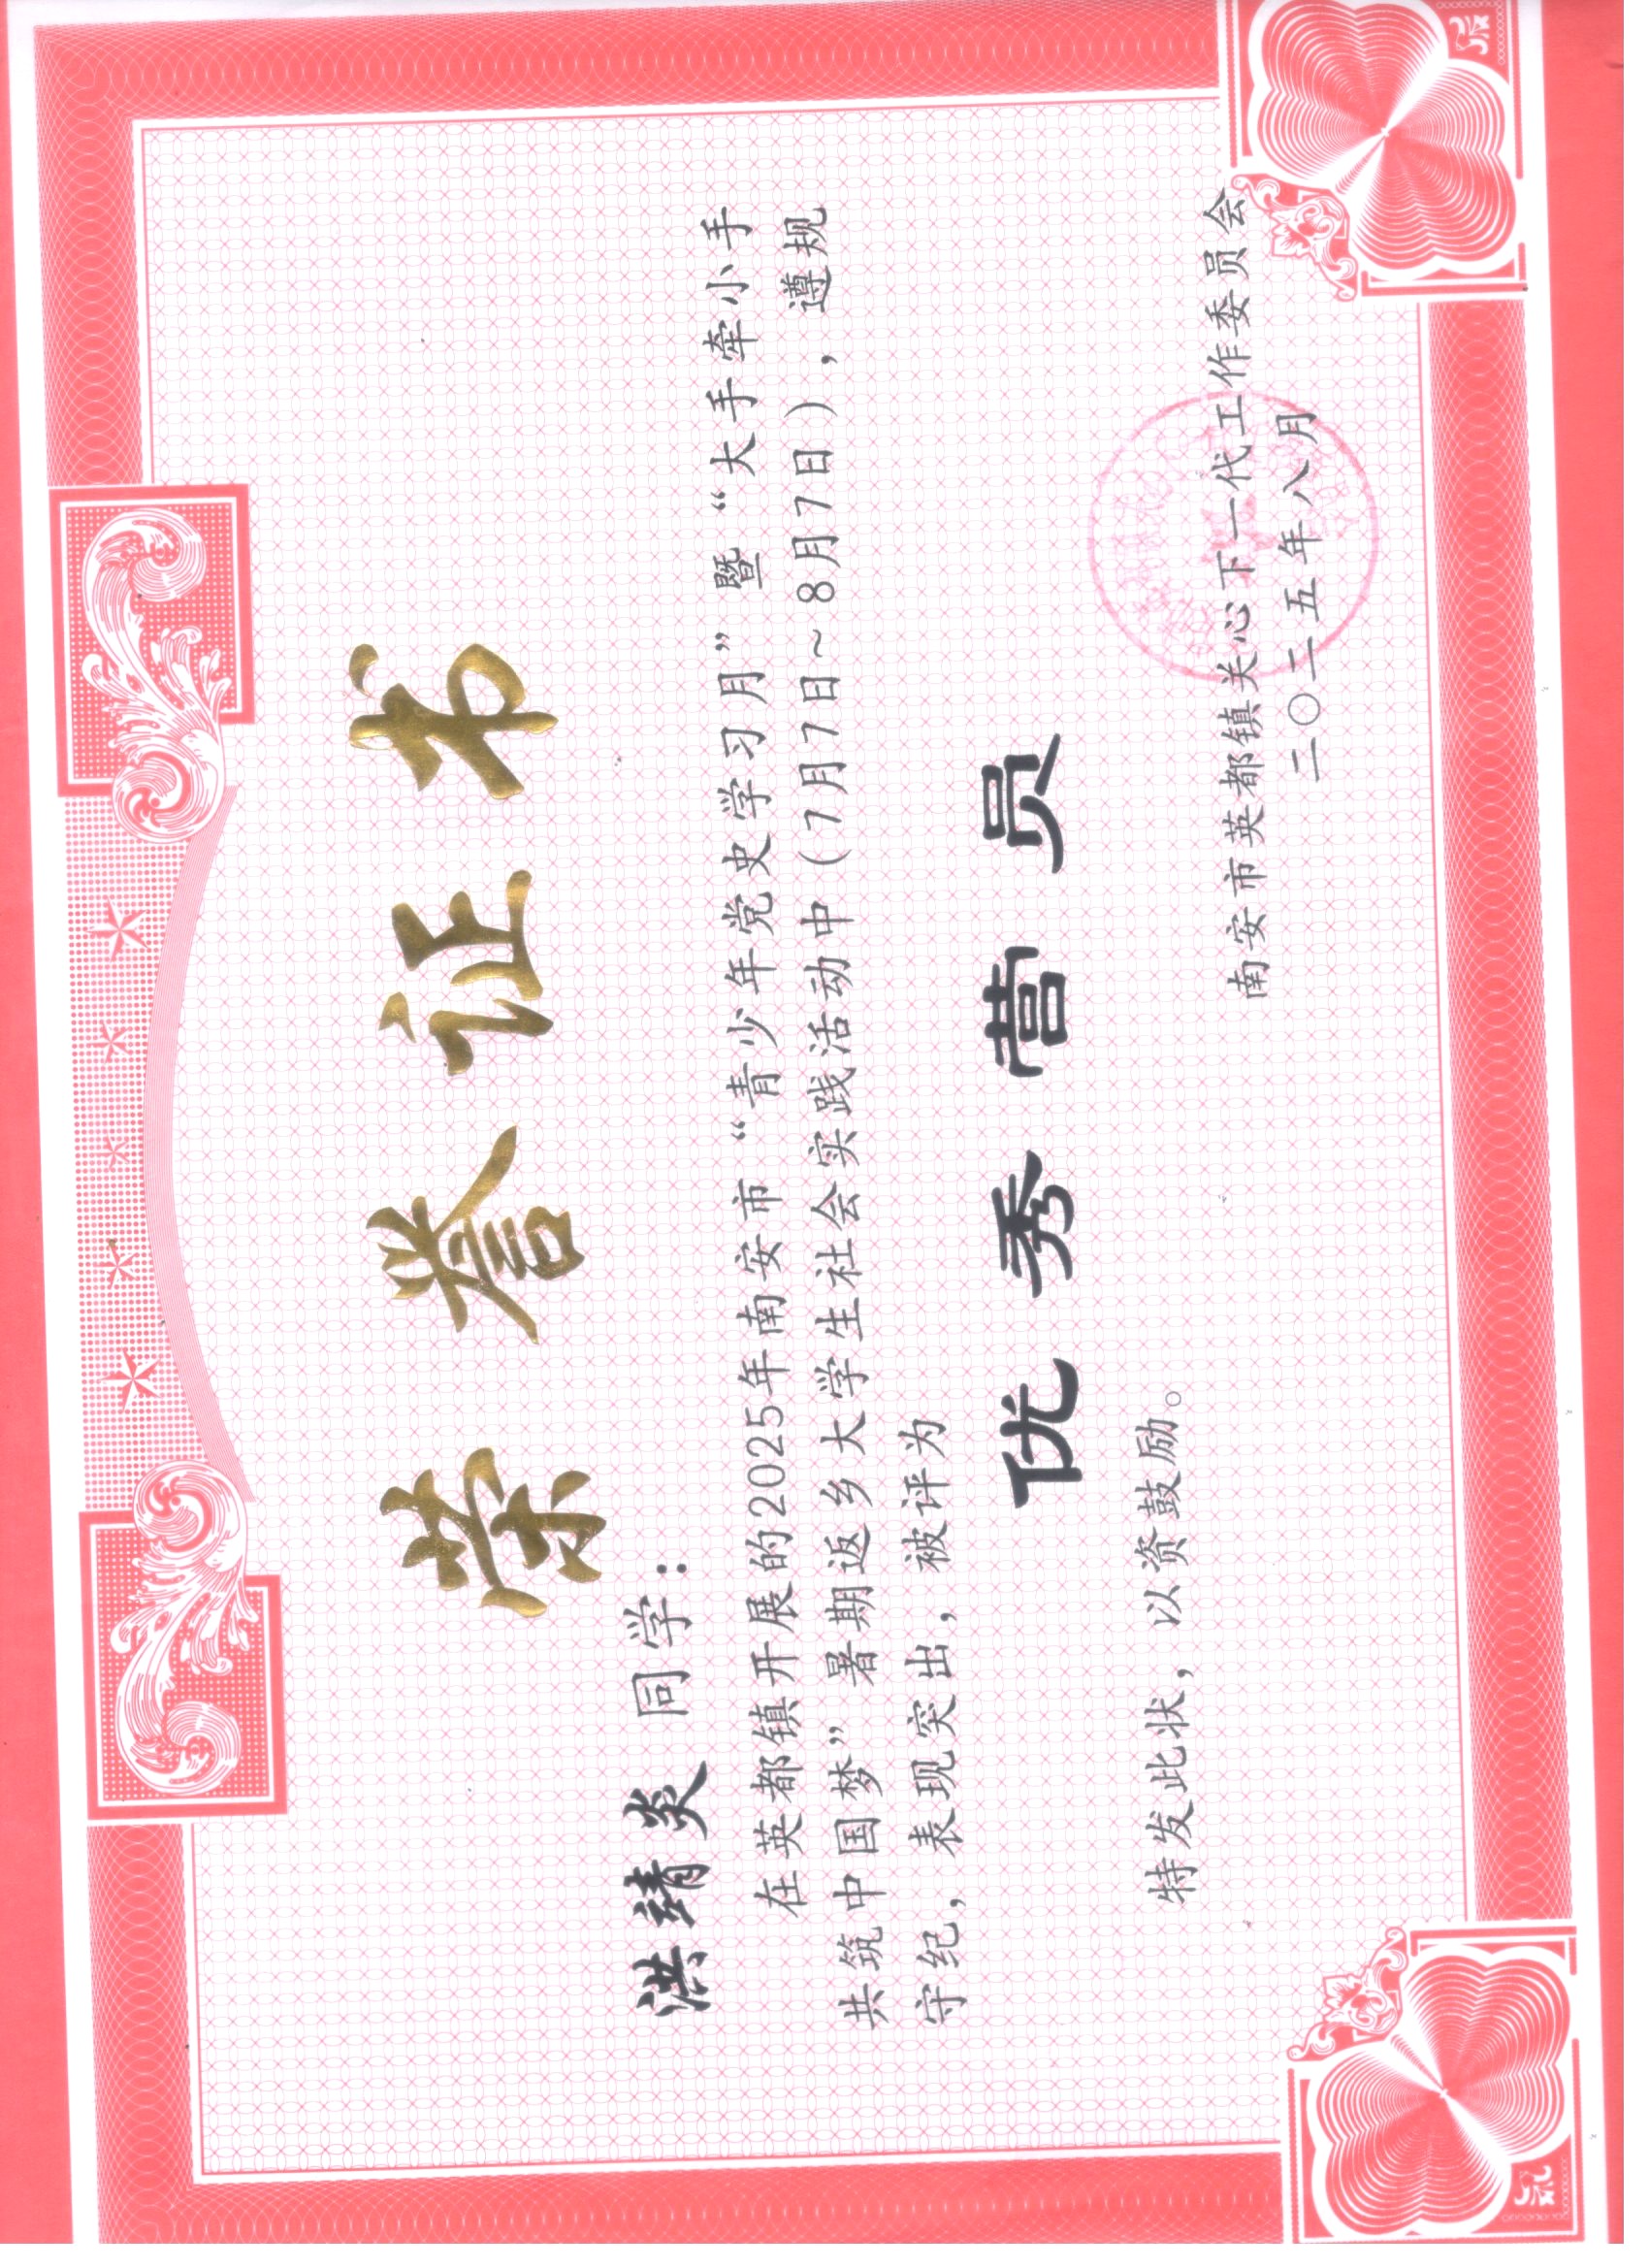 荣誉证书
洪婧炎同学：
在英都镇开展的2025年南安市“青少年党史学习月”暨“大手牵小手
共筑中国梦”暑期返乡大学生社会实践活动中（7月7日～8月7日），遵规
守纪，表现突出，被评为
优秀营员
特发此状，以资鼓励。
南安市英都镇关心下一代工作委员会
二〇二五年八月